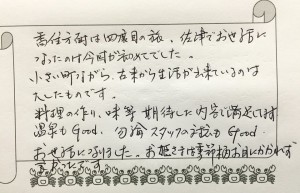 香住方面は四度目の旅、佐津でお世話に
なったのは今回が初めてでした。
小さい町ながら、古来から生活が出来ているのは
大したものです。
料理の作り、味等 期待した内容で満足してます
温泉も Good. 勿論 スタッフの対応も Good
お世話になりました。お聴きすれば季節柄お目にかかれず